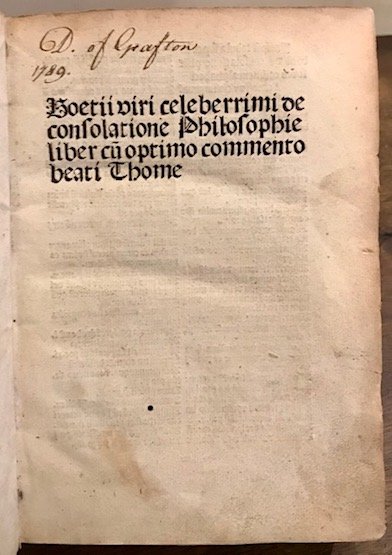 D. of Grafton
1789.
Boetii viri celeberrimi de
conſolatione Philoſophie
liber cū optimo commento
beati Thome